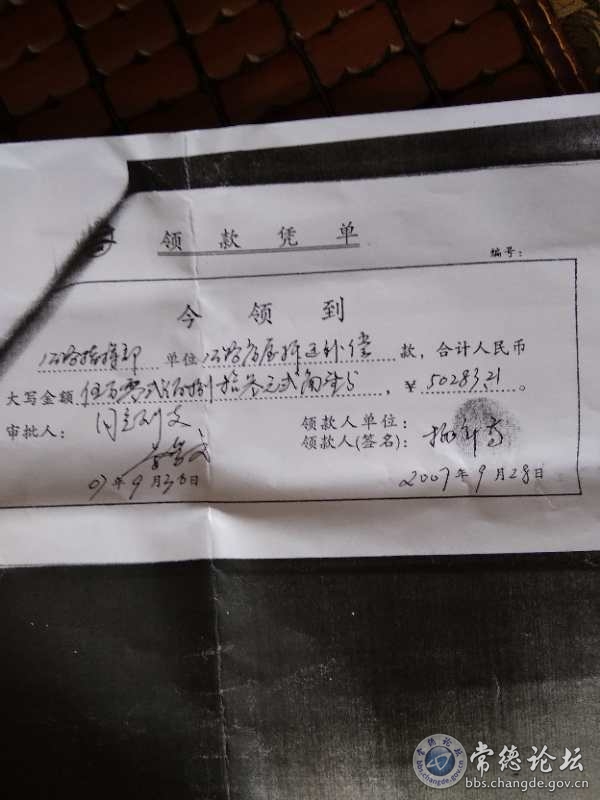 领款凭单
编号：
今领到
公路指挥部 单位 公路房屋拆迁补偿 款，合计人民币
大写金额 伍万零贰佰捌拾叁元贰角壹分，￥50283.21。
审批人： 同意列支 领款人单位：
领款人(签名)：
07年9月30日 2007年9月28日
常德论坛
bbs.changde.gov.cn